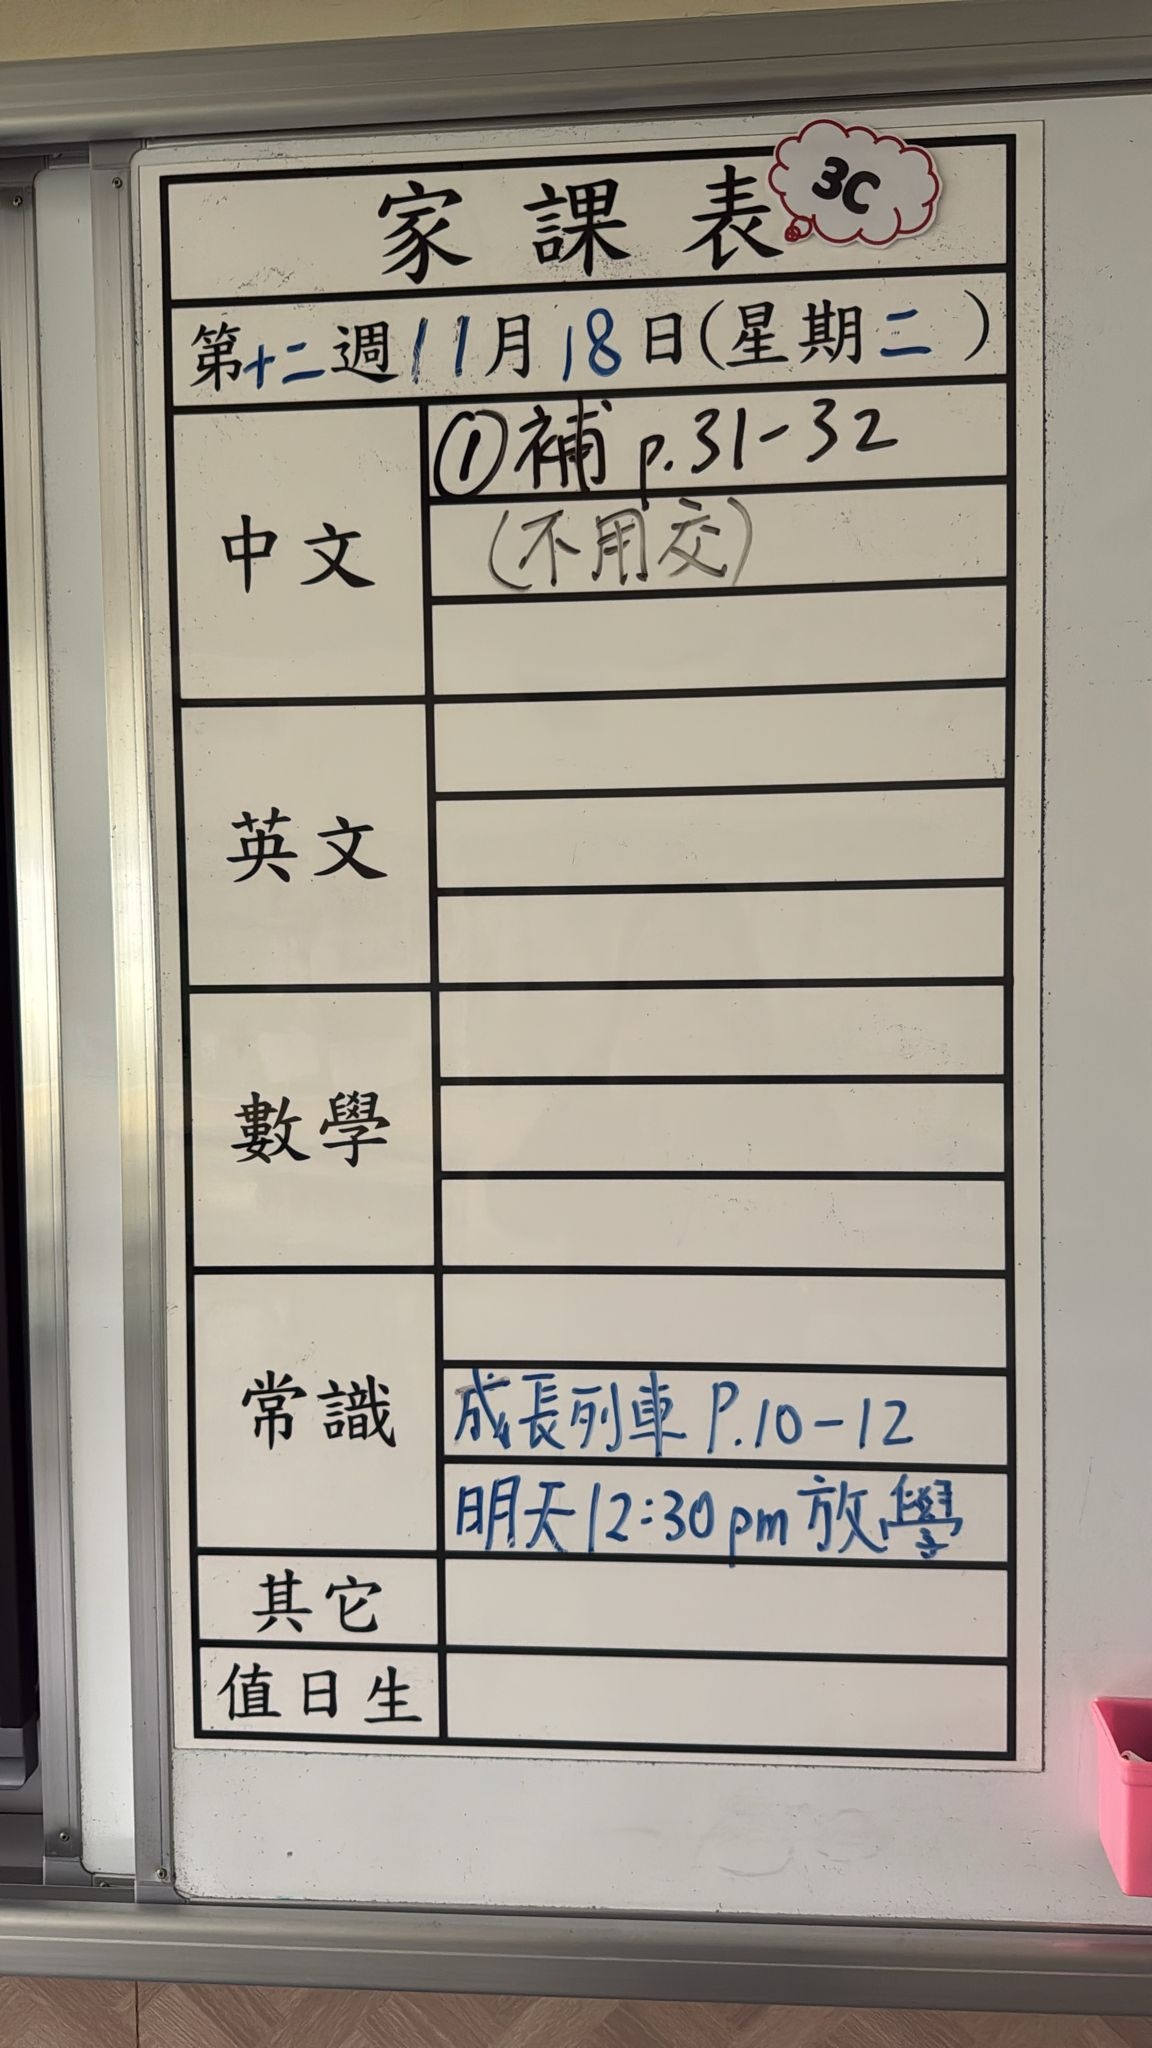 家課表
3C
第十二週11月18日(星期二)
中文
①補 p.31-32
(不用交)
英文
數學
常識
成長列車 P.10-12
明天12:30pm放學
其它
值日生